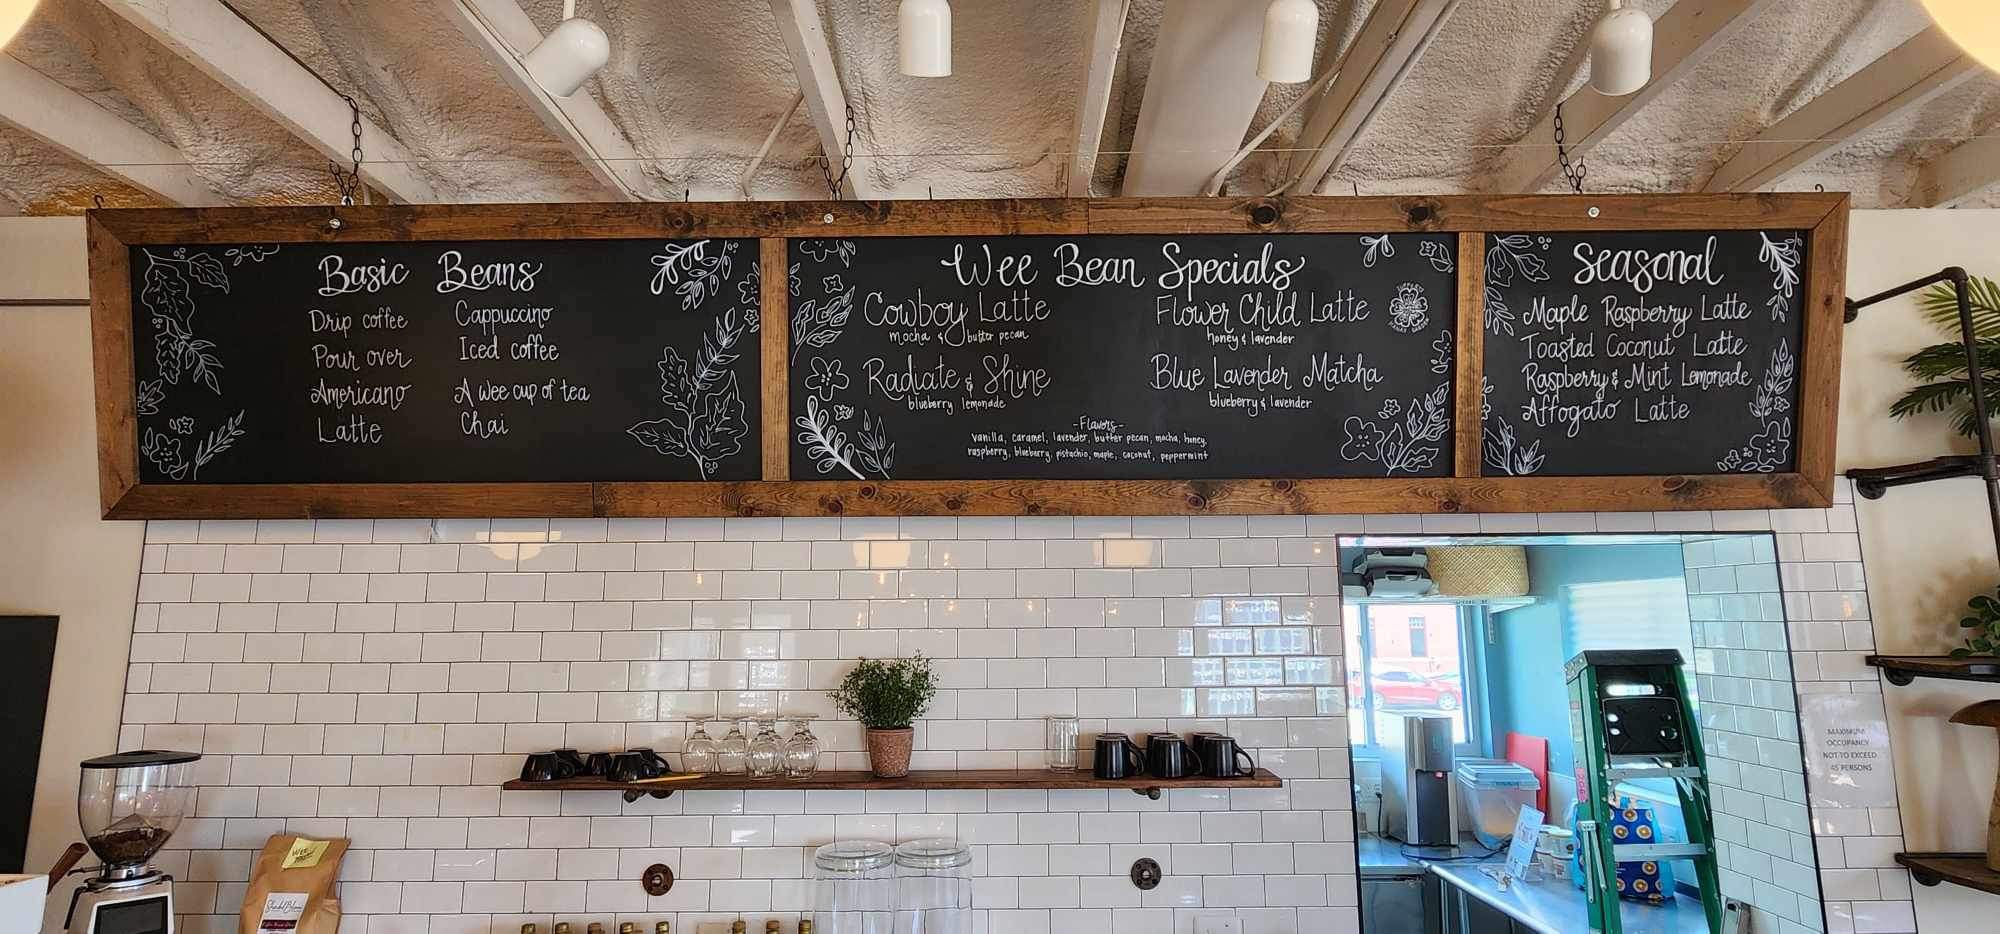 Basic Beans
Drip coffee
Pour over
Americano
Latte
Cappuccino
Iced coffee
A wee cup of tea
Chai
Wee Bean Specials
Cowboy Latte
mocha & butter pecan
Radiate & Shine
blueberry lemonade
Flower Child Latte
honey & lavender
Blue Lavender Matcha
blueberry & lavender
-Flavors-
vanilla, caramel, lavender, butter pecan, mocha, honey,
raspberry, blueberry, pistachio, maple, coconut, peppermint
Seasonal
Maple Raspberry Latte
Toasted Coconut Latte
Raspberry & Mint Lemonade
Affogato Latte
MAXIMUM
OCCUPANCY
NOT TO EXCEED
45 PERSONS